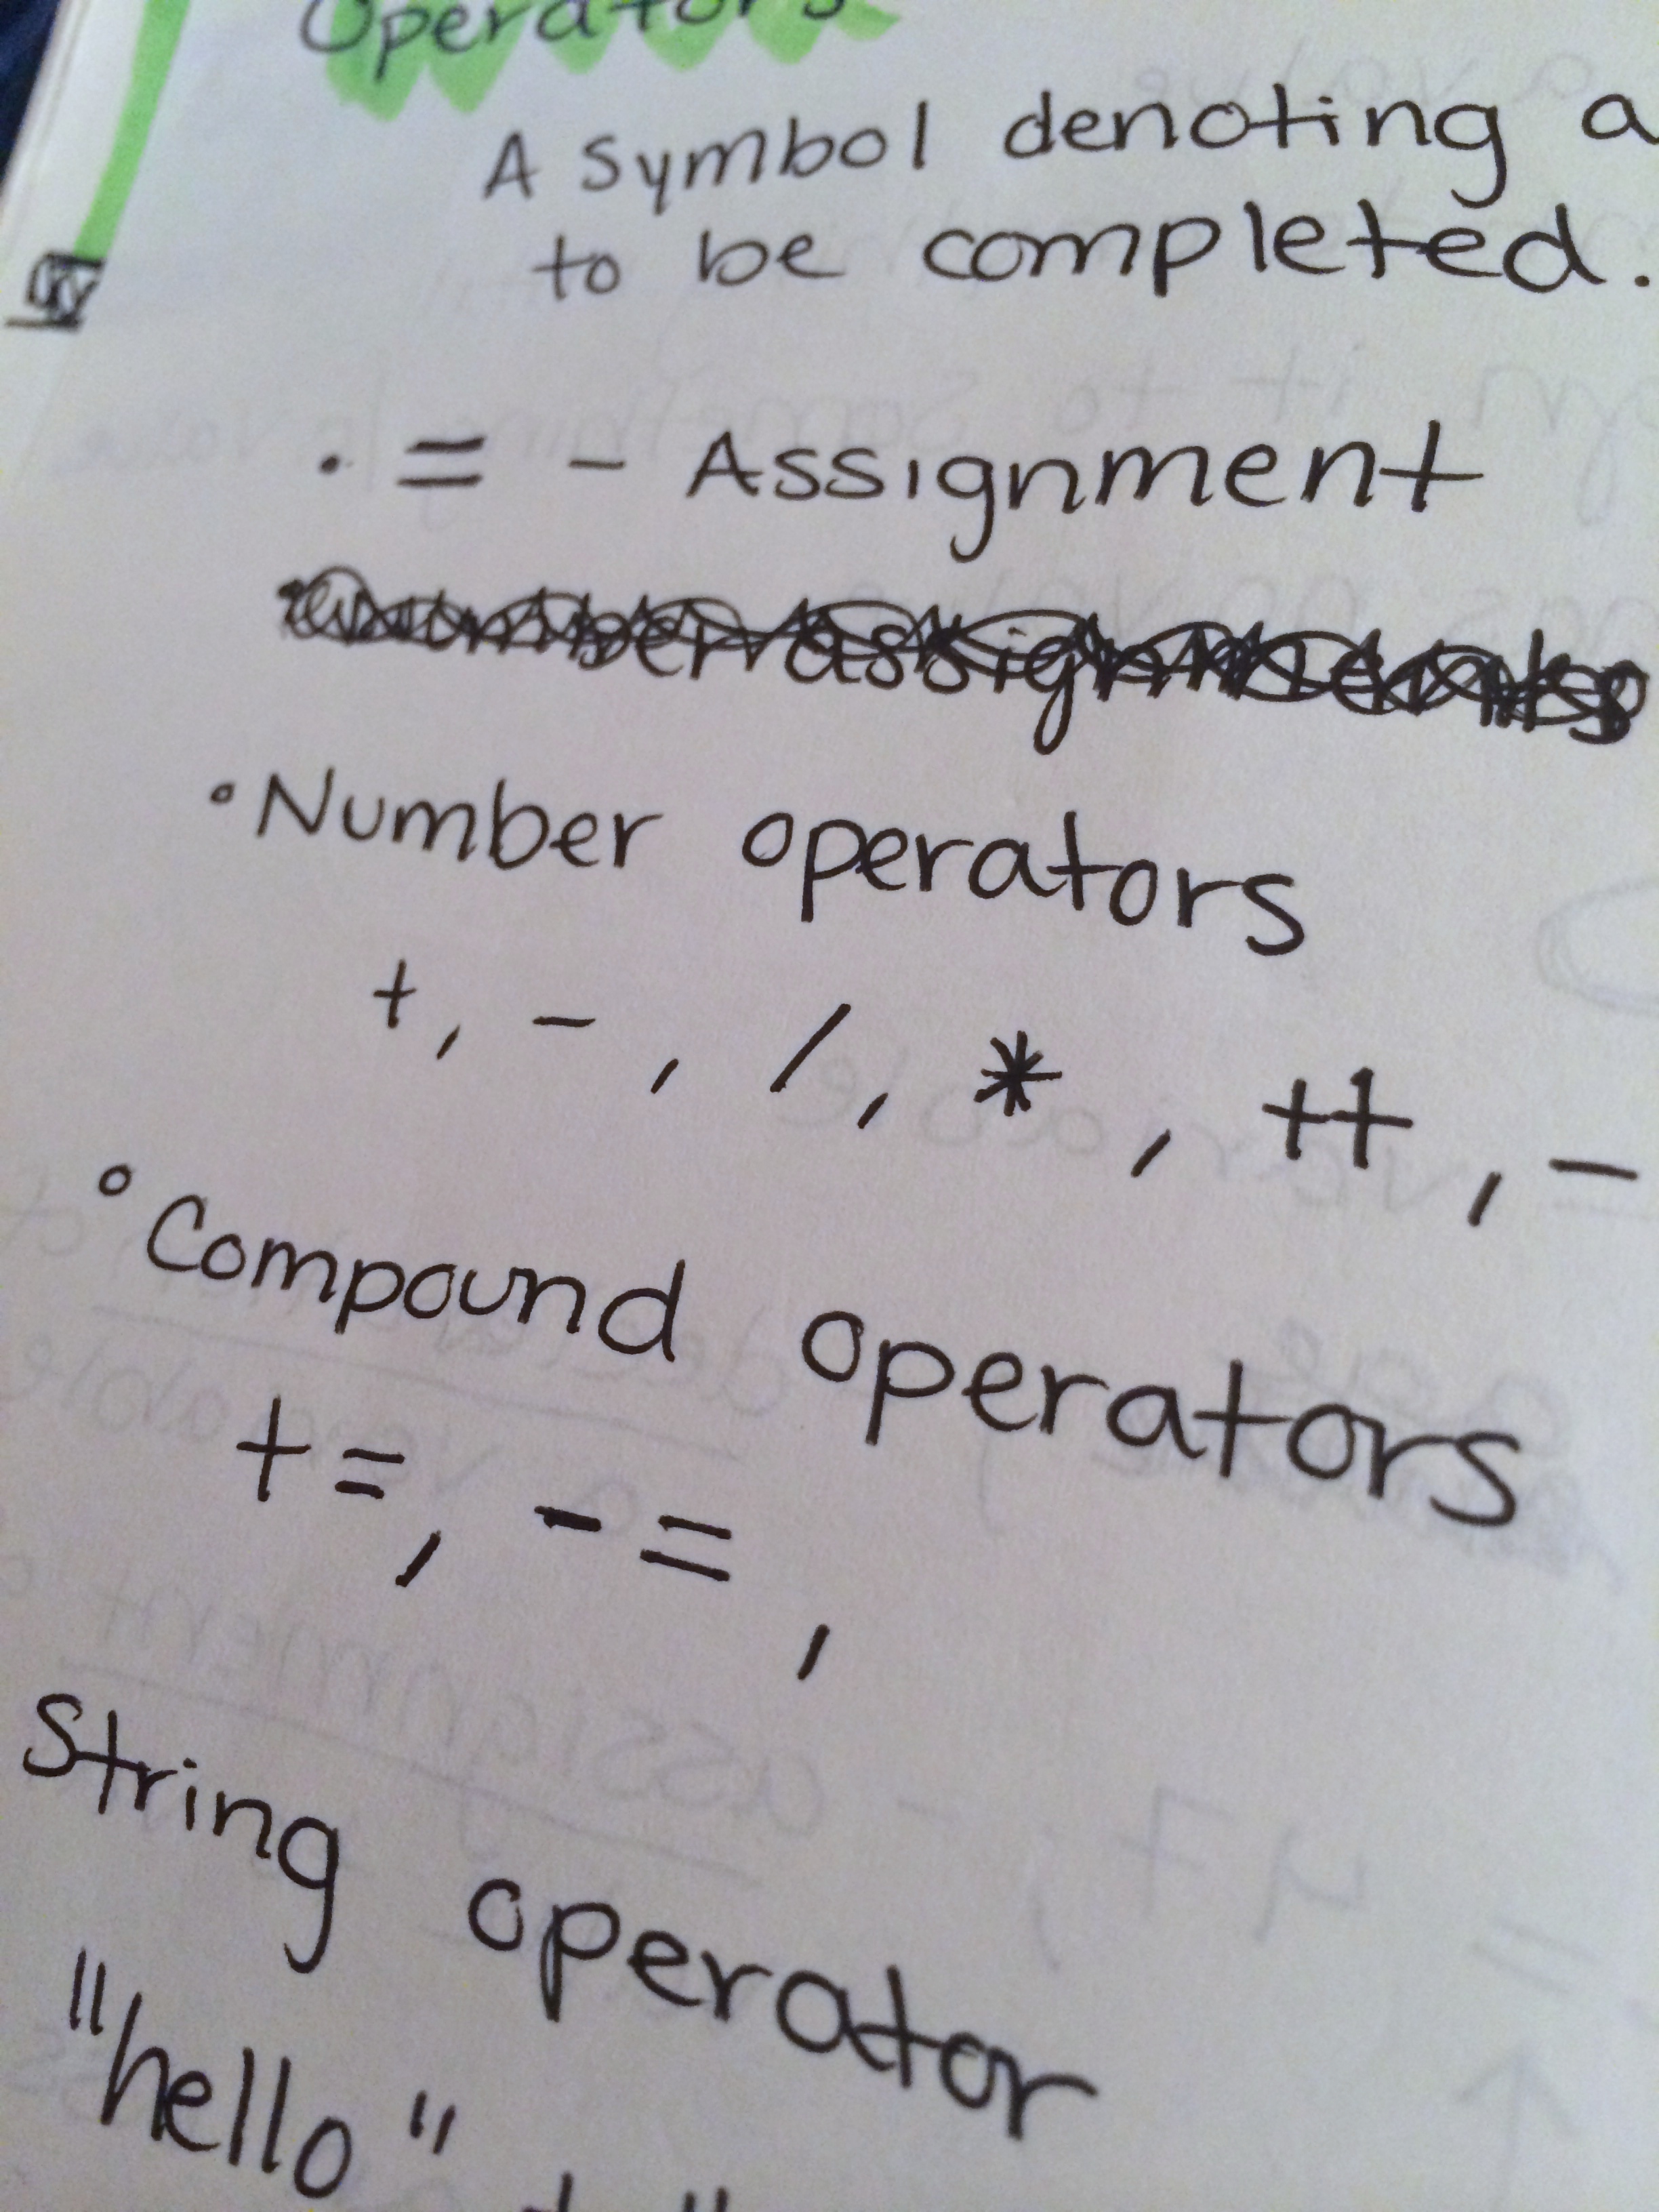 Operators
A symbol denoting a
to be completed.
• = - Assignment
• Number operators
+, -, /, *, ++, -
• Compound operators
+=, -=,
String operator
"hello" + "